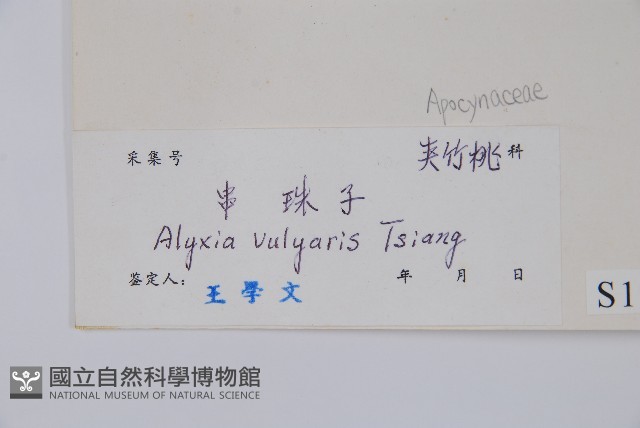 Apocynaceae
采集号 夹竹桃科
串珠子
Alyxia vulyaris Tsiang
鉴定人: 王學文 年 月 日
S1
國立自然科學博物館
NATIONAL MUSEUM OF NATURAL SCIENCE